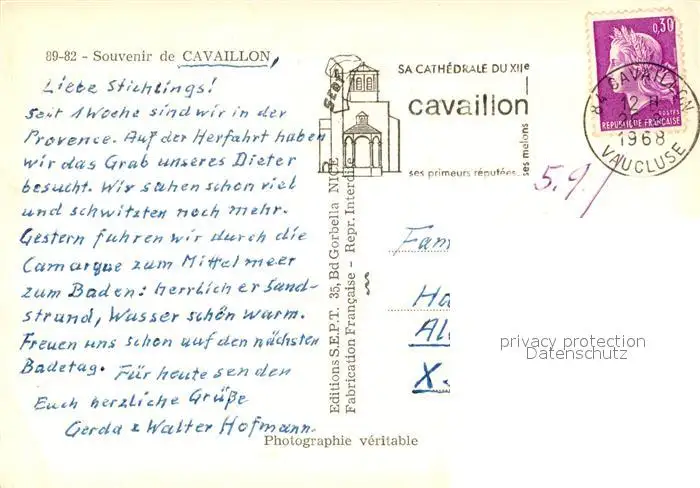 89-82 - Souvenir de CAVAILLON,
Liebe Stichlings!
Seit 1 Woche sind wir in der
Provence. Auf der Herfahrt haben
wir das Grab unseres Dieter
besucht. Wir sahen schon viel
und schwitzten noch mehr.
Gestern fuhren wir durch die
Camargue zum Mittelmeer
zum Baden: herrlicher Sand-
strand, Wasser schön warm.
Freuen uns schon auf den nächsten
Badetag. Für heute senden
Euch herzliche Grüße
Gerda & Walter Hofmann.
Photographie véritable
Editions S.E.P.T. 35, Bd Gorbella NICE
Fabrication Française - Repr. Interdite
SA CATHÉDRALE DU XIIe
cavaillon
ses primeurs réputées
ses melons
0,30
POSTES
REPUBLIQUE FRANÇAISE
84 CAVAILLON
12 H
1968
VAUCLUSE
5.9.
Fam
Ha
Al
X.
privacy protection
Datenschutz